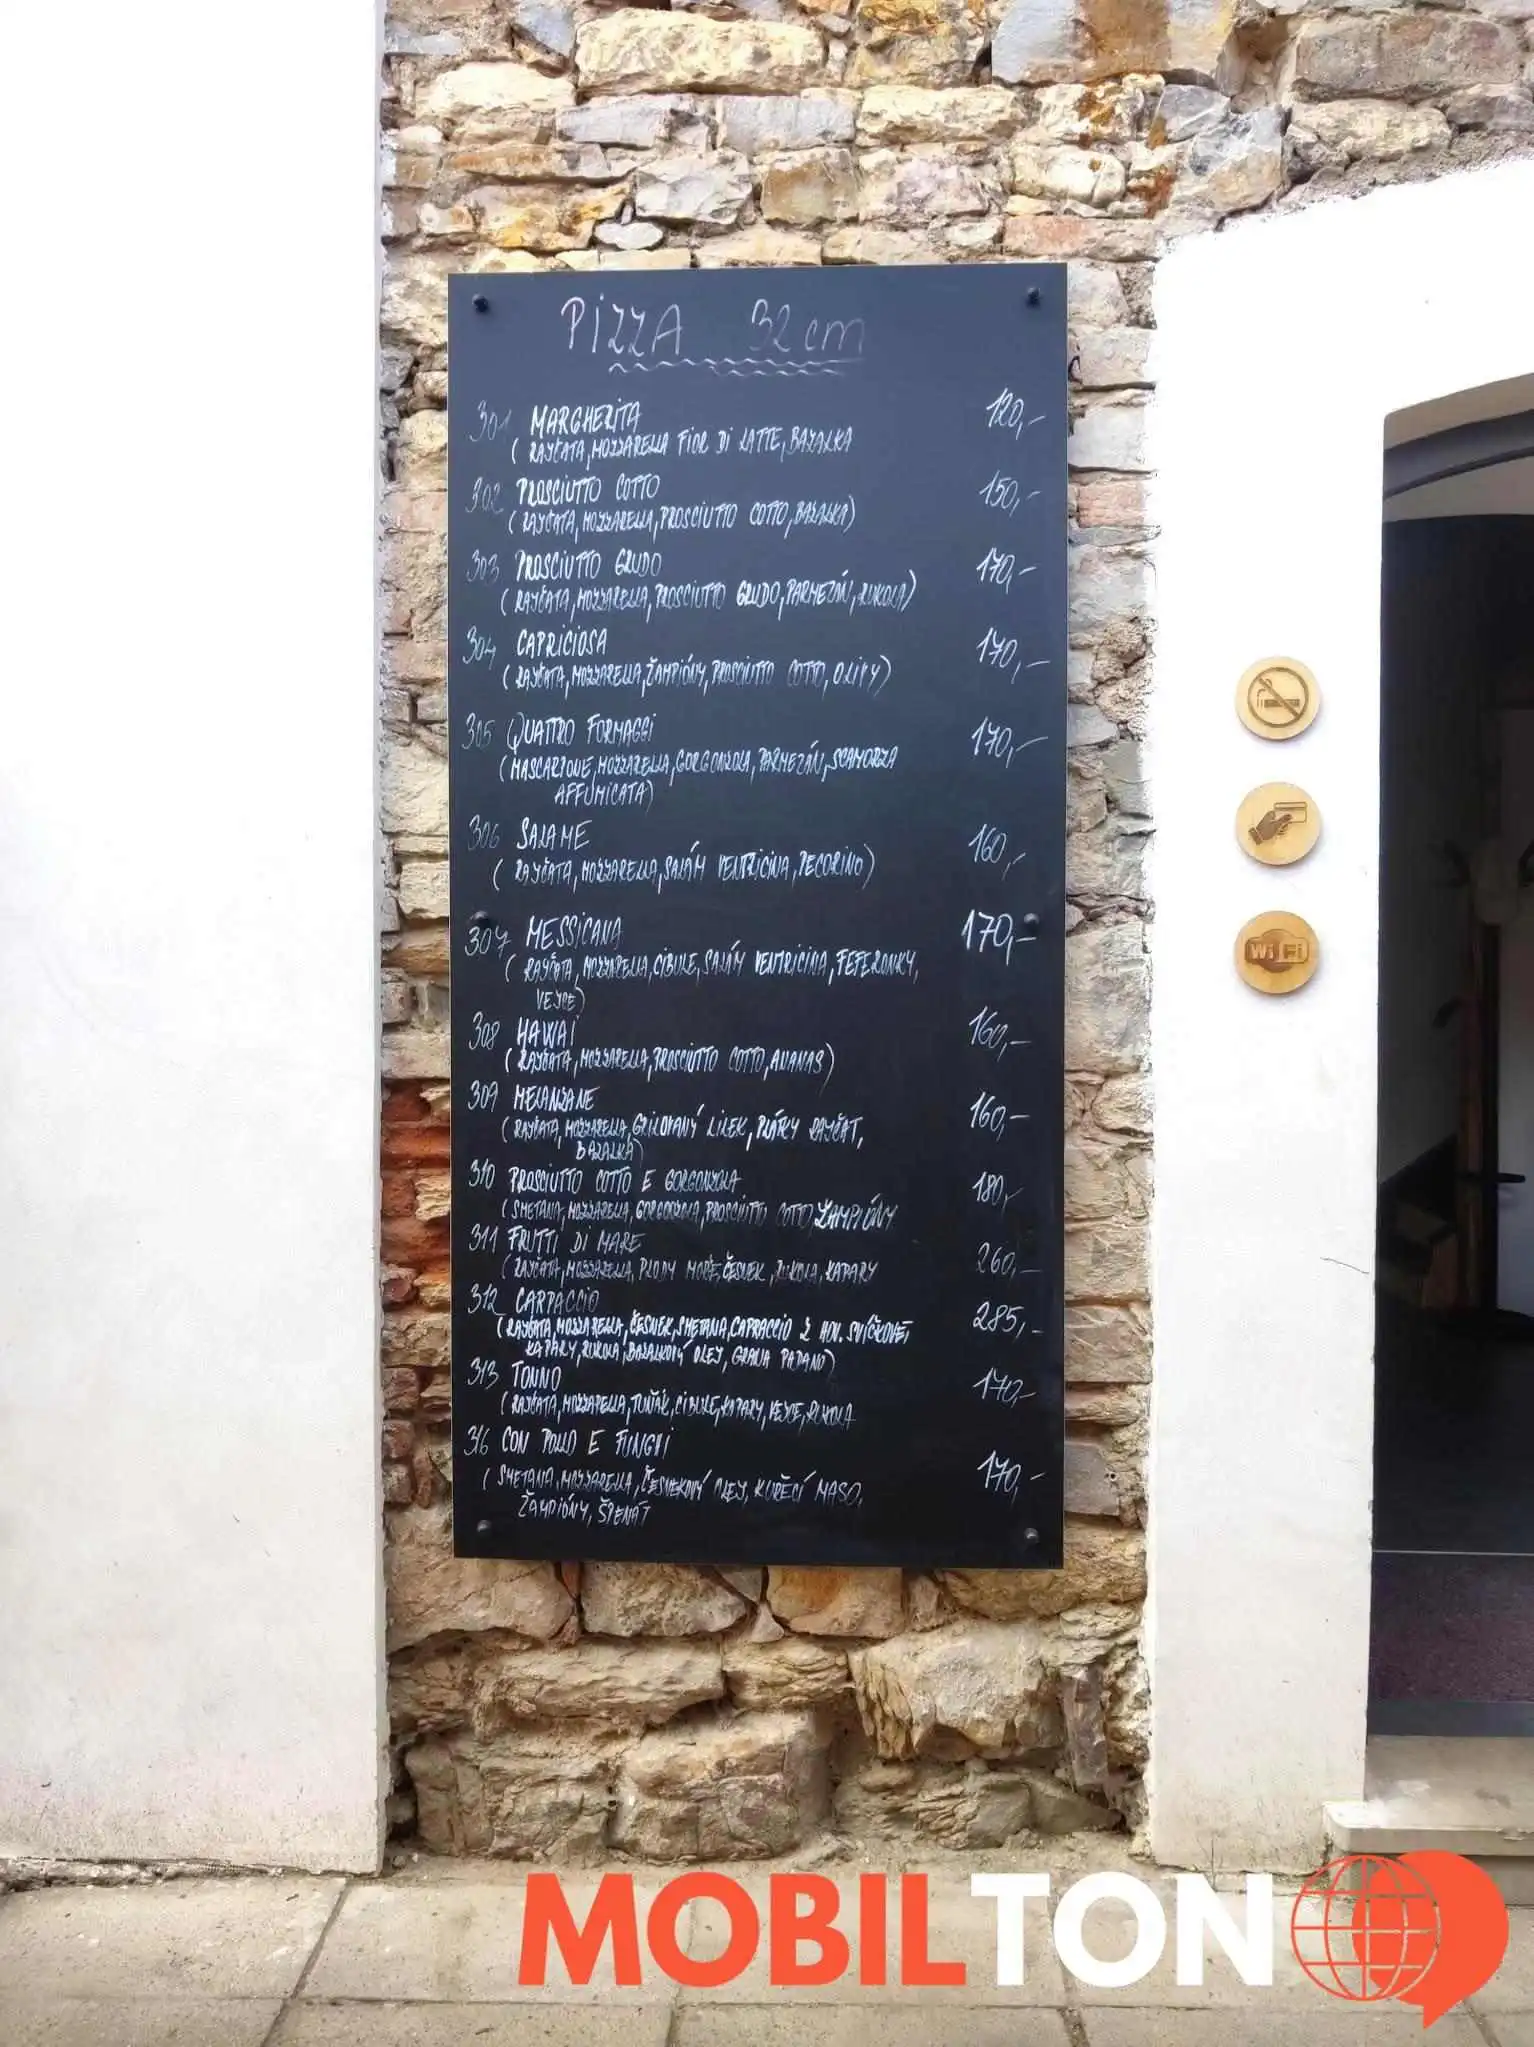 PIZZA 32 cm
301 MARGHERITA 120,-
( RAJČATA, MOZZARELLA FIOR DI LATTE, BAZALKA
302 PROSCIUTTO COTTO 150,-
( RAJČATA, MOZZARELLA, PROSCIUTTO COTTO, BAZALKA)
303 PROSCIUTTO CRUDO 170,-
( RAJČATA, MOZZARELLA, PROSCIUTTO CRUDO, PARMEZÁN, RUKOLA)
304 CAPRICIOSA 170,-
( RAJČATA, MOZZARELLA, ŽAMPIÓNY, PROSCIUTTO COTTO, OLIVY)
305 QUATTRO FORMAGGI 170,-
( MASCARPONE, MOZZARELLA, GORGONZOLA, PARMEZÁN, SCAMORZA
AFFUMICATA)
306 SALAME 160,-
( RAJČATA, MOZZARELLA, SALÁM VENTRICINA, PECORINO)
307 MESSICANA 170,-
( RAJČATA, MOZZARELLA, CIBULE, SALÁM VENTRICINA, FEFERONKY,
VEJCE)
308 HAWAI 160,-
( RAJČATA, MOZZARELLA, PROSCIUTTO COTTO, ANANAS)
309 MELANZANE 160,-
( RAJČATA, MOZZARELLA, GRILOVANÝ LILEK, PLÁTKY RAJČAT,
BAZALKA)
310 PROSCIUTTO COTTO E GORGONZOLA 180,-
( SMETANA, MOZZARELLA, GORGONZOLA, PROSCIUTTO COTTO, ŽAMPIÓNY
311 FRUTTI DI MARE 260,-
( RAJČATA, MOZZARELLA, PLODY MOŘE, ČESNEK, RUKOLA, KAPARY
312 CARPACCIO 285,-
( RAJČATA, MOZZARELLA, ČESNEK, SMETANA, CAPRACCIO Z HOV. SVÍČKOVÉ,
KAPARY, RUKOLA, BAZALKOVÝ OLEJ, GRANA PADANO)
313 TONNO 170,-
( RAJČATA, MOZZARELLA, TUŇÁK, CIBULE, KAPARY, VEJCE, RUKOLA
316 CON POLLO E FUNGHI 170,-
( SMETANA, MOZZARELLA, ČESNEKOVÝ OLEJ, KUŘECÍ MASO,
ŽAMPIÓNY, ŠPENÁT
Wi Fi
MOBILTON